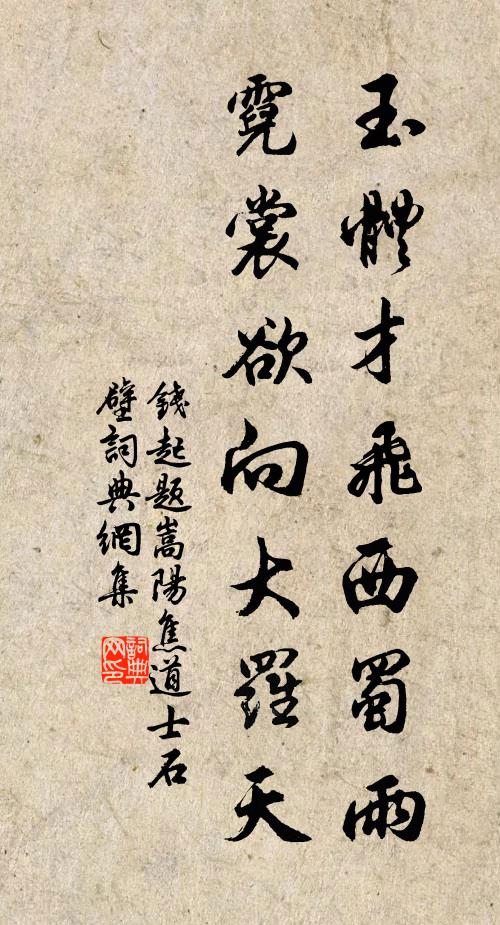 玉體才飛西蜀雨
霓裳欲向大羅天
錢起題嵩陽焦道士石
壁詞典網集
詞典
网印